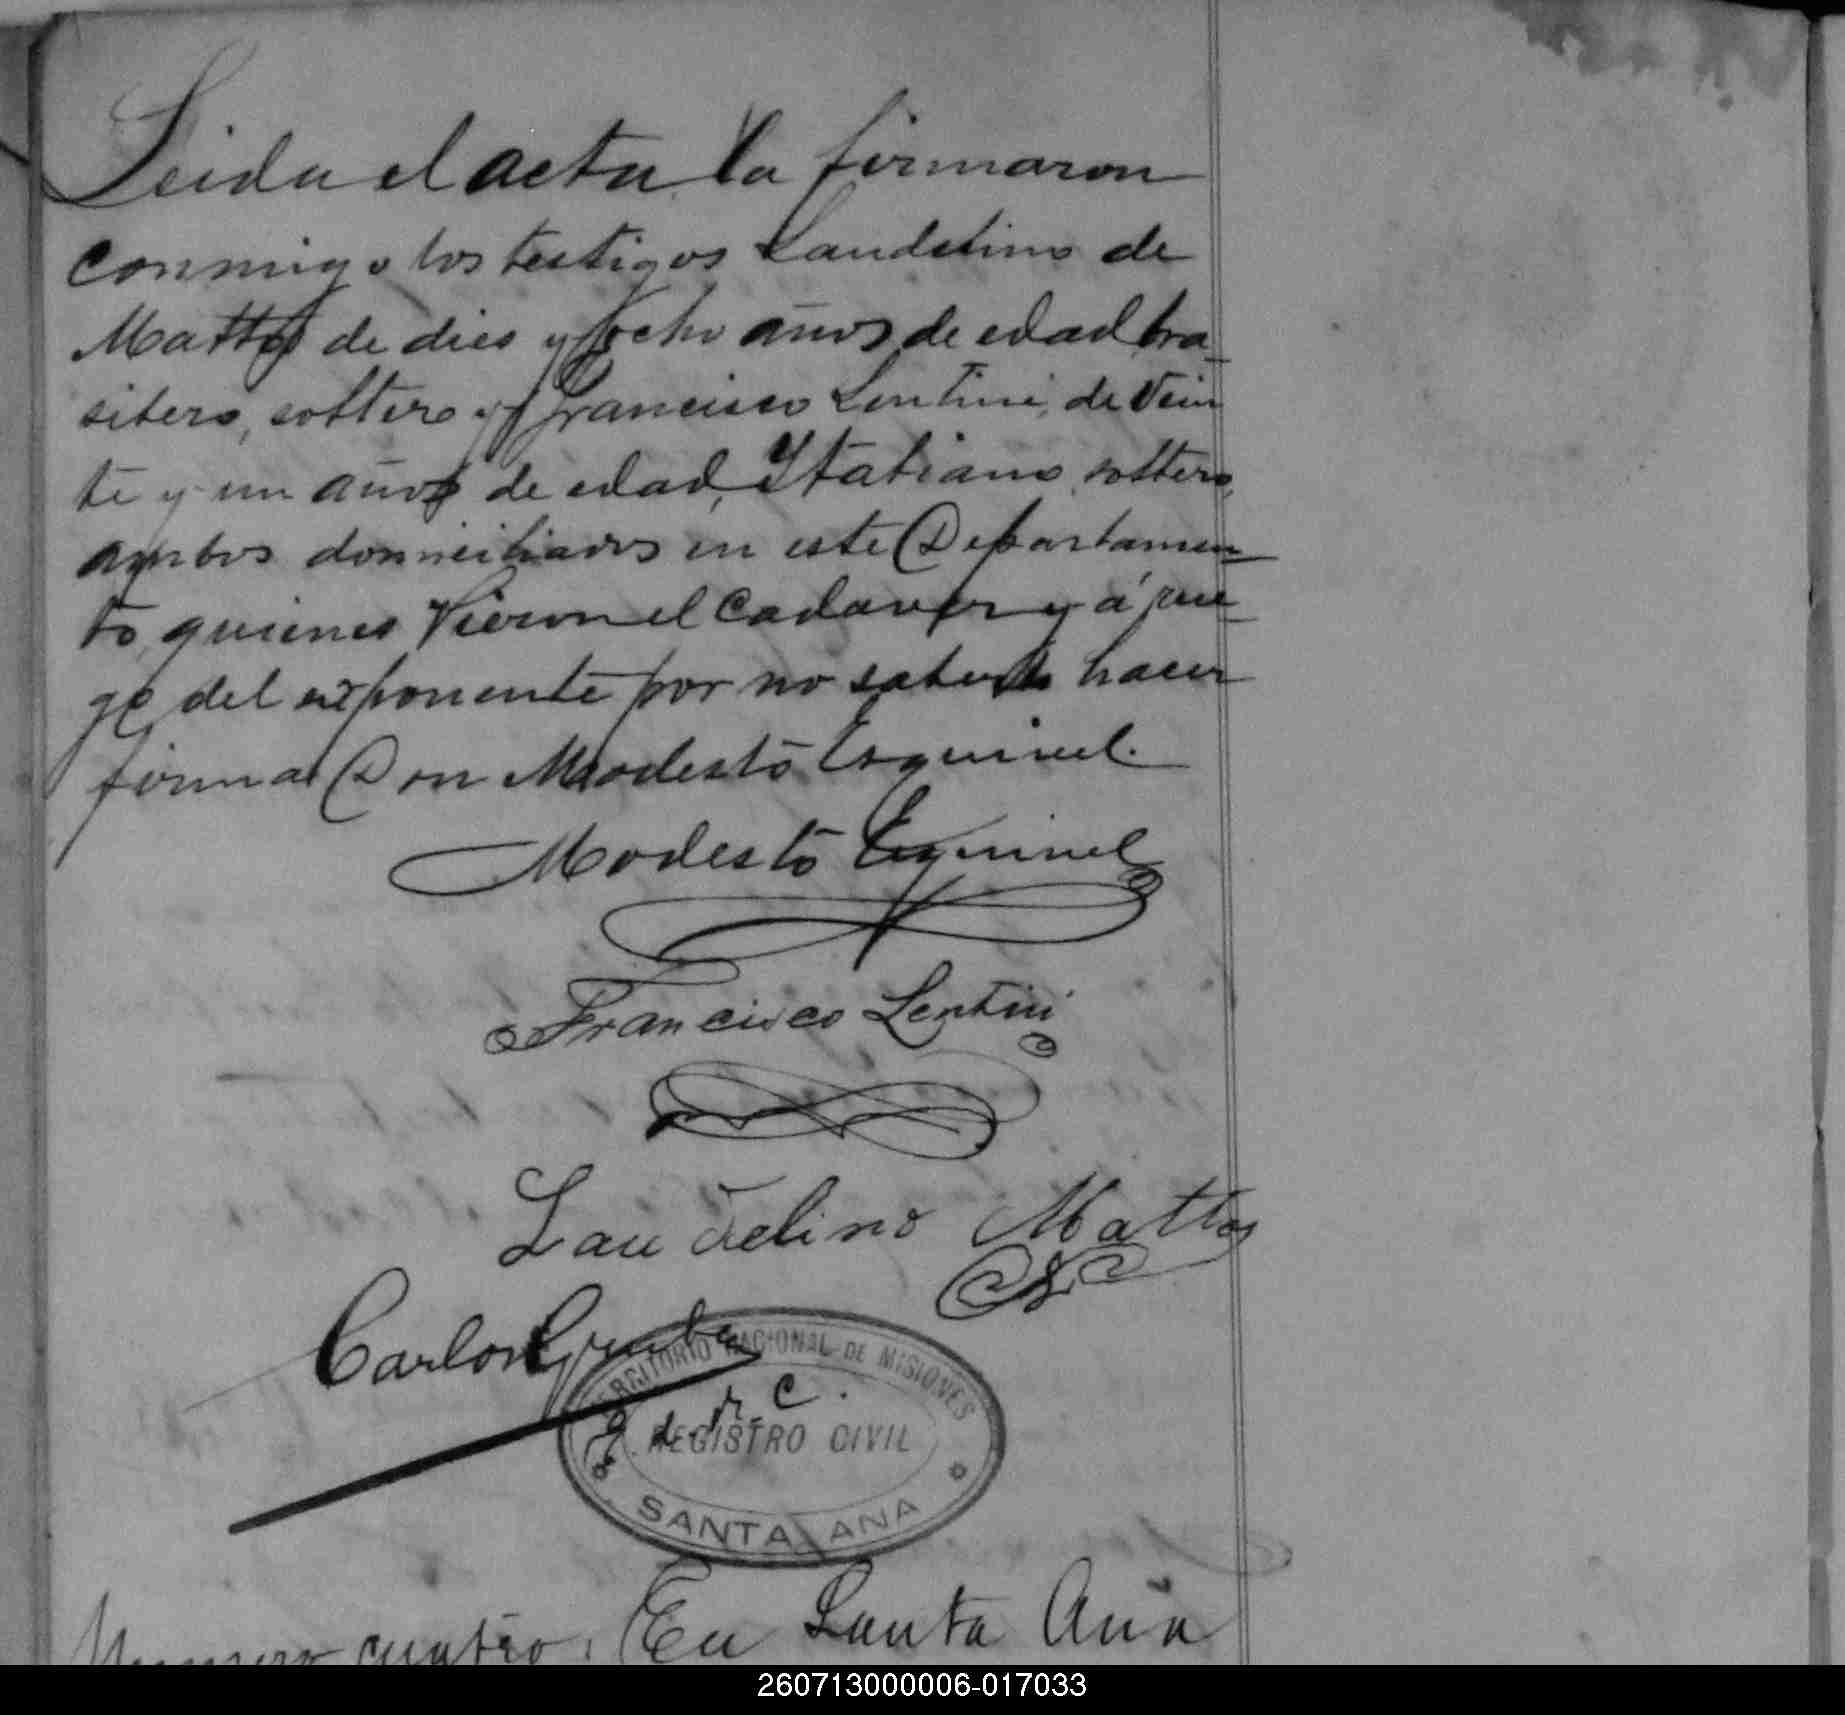 Leida el acta la firmaron
conmigo los testigos Landelino de
Mattos de dies y ocho años de edad bra-
silero, soltero y Francisco Lentini, de Vein
te y un años de edad, Italiano, soltero,
ambos domiciliados en este Departamen-
to, quienes Vieron el Cadaver y á rue-
go del exponente por no saberlo hacer
firma Don Modesto Esquivel.
Modesto Esquivel
Francisco Lentini
Laudelino Mattos
Carlos
TERRITORIO NACIONAL DE MISIONES
REGISTRO CIVIL
SANTA ANA
Numero cuatro. En Santa Ana
260713000006-017033